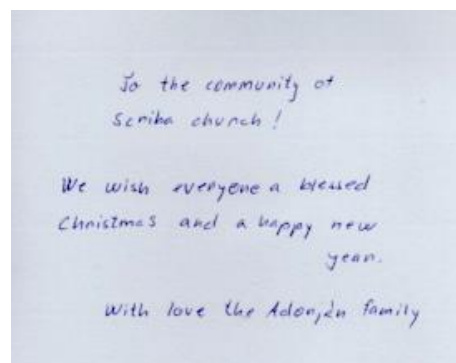 To the community of
Scriba church!
We wish everyone a blessed
Christmas and a happy new
year.
With love the Adonján family